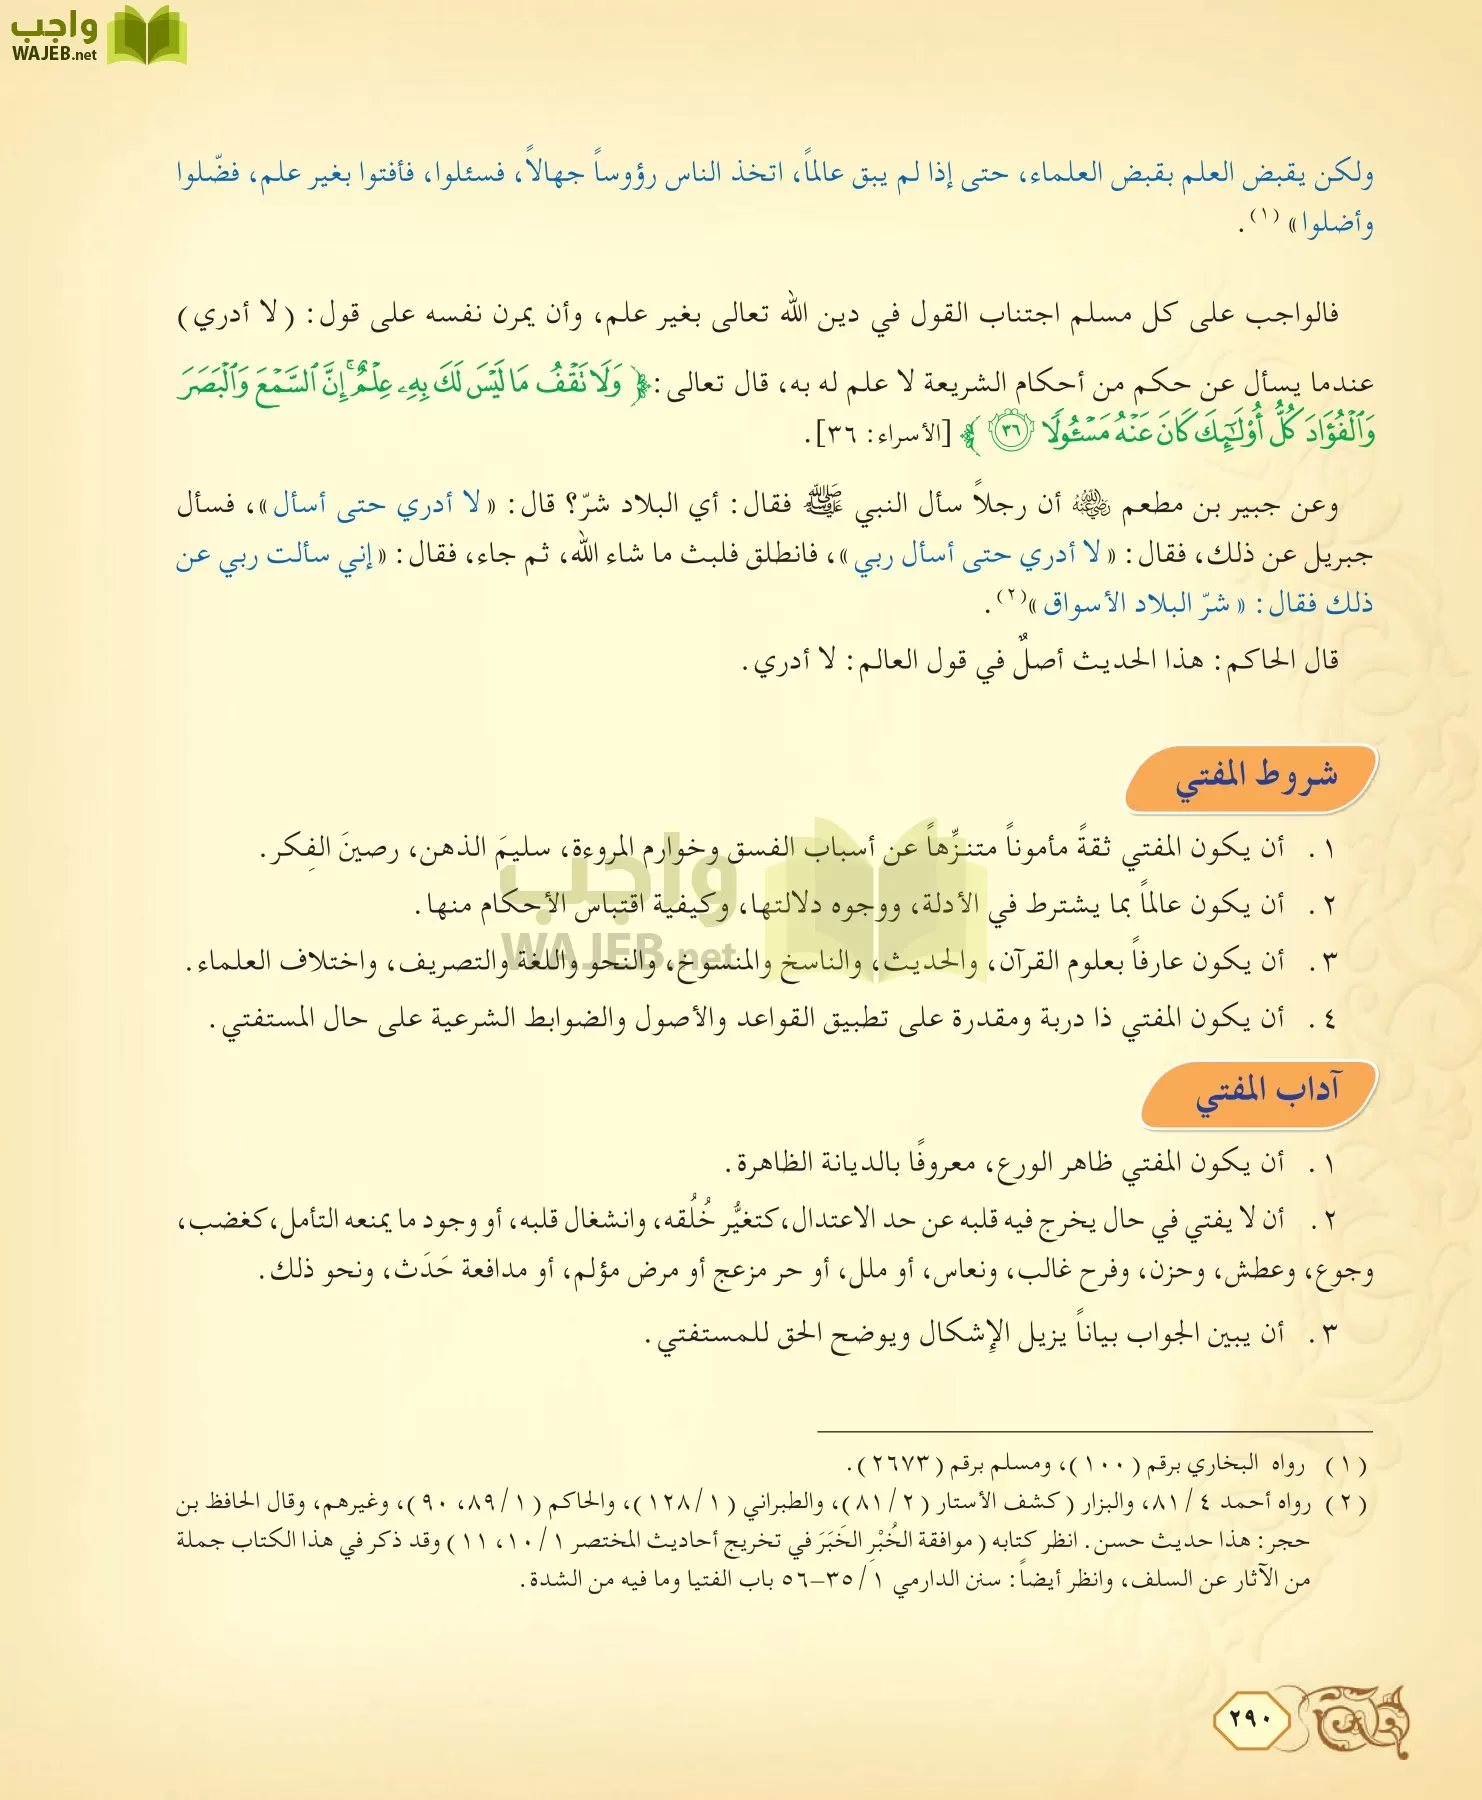 واجب
WAJEB.net
ولكن يقبض العلم بقبض العلماء، حتى إذا لم يبق عالماً، اتخذ الناس رؤوساً جهالاً، فسئلوا، فأفتوا بغير علم، فضّلوا
وأضلوا» (١).
فالواجب على كل مسلم اجتناب القول في دين الله تعالى بغير علم، وأن يمرن نفسه على قول: (لا أدري)
عندما يسأل عن حكم من أحكام الشريعة لا علم له به، قال تعالى: ﴿ وَلَا تَقْفُ مَا لَيْسَ لَكَ بِهِۦ عِلْمٌ ۚ إِنَّ ٱلسَّمْعَ وَٱلْبَصَرَ
وَٱلْفُؤَادَ كُلُّ أُو۟لَٰٓئِكَ كَانَ عَنْهُ مَسْـُٔولًا ٣٦ ﴾ [الأسراء: ٣٦].
وعن جبير بن مطعم رضي الله عنه أن رجلاً سأل النبي ﷺ فقال: أي البلاد شرّ؟ قال: «لا أدري حتى أسأل»، فسأل
جبريل عن ذلك، فقال: «لا أدري حتى أسأل ربي»، فانطلق فلبث ما شاء الله، ثم جاء، فقال: «إني سألت ربي عن
ذلك فقال: «شرّ البلاد الأسواق»(٢).
قال الحاكم: هذا الحديث أصلٌ في قول العالم: لا أدري.
شروط المفتي
١. أن يكون المفتي ثقةً مأموناً متنزِّهاً عن أسباب الفسق وخوارم المروءة، سليمَ الذهن، رصينَ الفِكر.
٢. أن يكون عالماً بما يشترط في الأدلة، ووجوه دلالتها، وكيفية اقتباس الأحكام منها.
٣. أن يكون عارفاً بعلوم القرآن، والحديث، والناسخ والمنسوخ، والنحو واللغة والتصريف، واختلاف العلماء.
٤. أن يكون المفتي ذا دربة ومقدرة على تطبيق القواعد والأصول والضوابط الشرعية على حال المستفتي.
واجب
WAJEB.net
آداب المفتي
١. أن يكون المفتي ظاهر الورع، معروفًا بالديانة الظاهرة.
٢. أن لا يفتي في حال يخرج فيه قلبه عن حد الاعتدال، كتغيُّر خُلُقه، وانشغال قلبه، أو وجود ما يمنعه التأمل، كغضب،
وجوع، وعطش، وحزن، وفرح غالب، ونعاس، أو ملل، أو حر مزعج أو مرض مؤلم، أو مدافعة حَدَث، ونحو ذلك.
٣. أن يبين الجواب بياناً يزيل الإشكال ويوضح الحق للمستفتي.
(١) رواه البخاري برقم (١٠٠)، ومسلم برقم (٢٦٧٣).
(٢) رواه أحمد ٤/ ٨١، والبزار (كشف الأستار (٢/ ٨١)، والطبراني (١/ ١٢٨)، والحاكم (١/ ٨٩، ٩٠)، وغيرهم، وقال الحافظ بن
حجر: هذا حديث حسن. انظر كتابه (موافقة الخُبْرِ الخَبَرَ في تخريج أحاديث المختصر ١/ ١٠، ١١) وقد ذكر في هذا الكتاب جملة
من الآثار عن السلف، وانظر أيضاً: سنن الدارمي ١/ ٣٥–٥٦ باب الفتيا وما فيه من الشدة.
٢٩٠